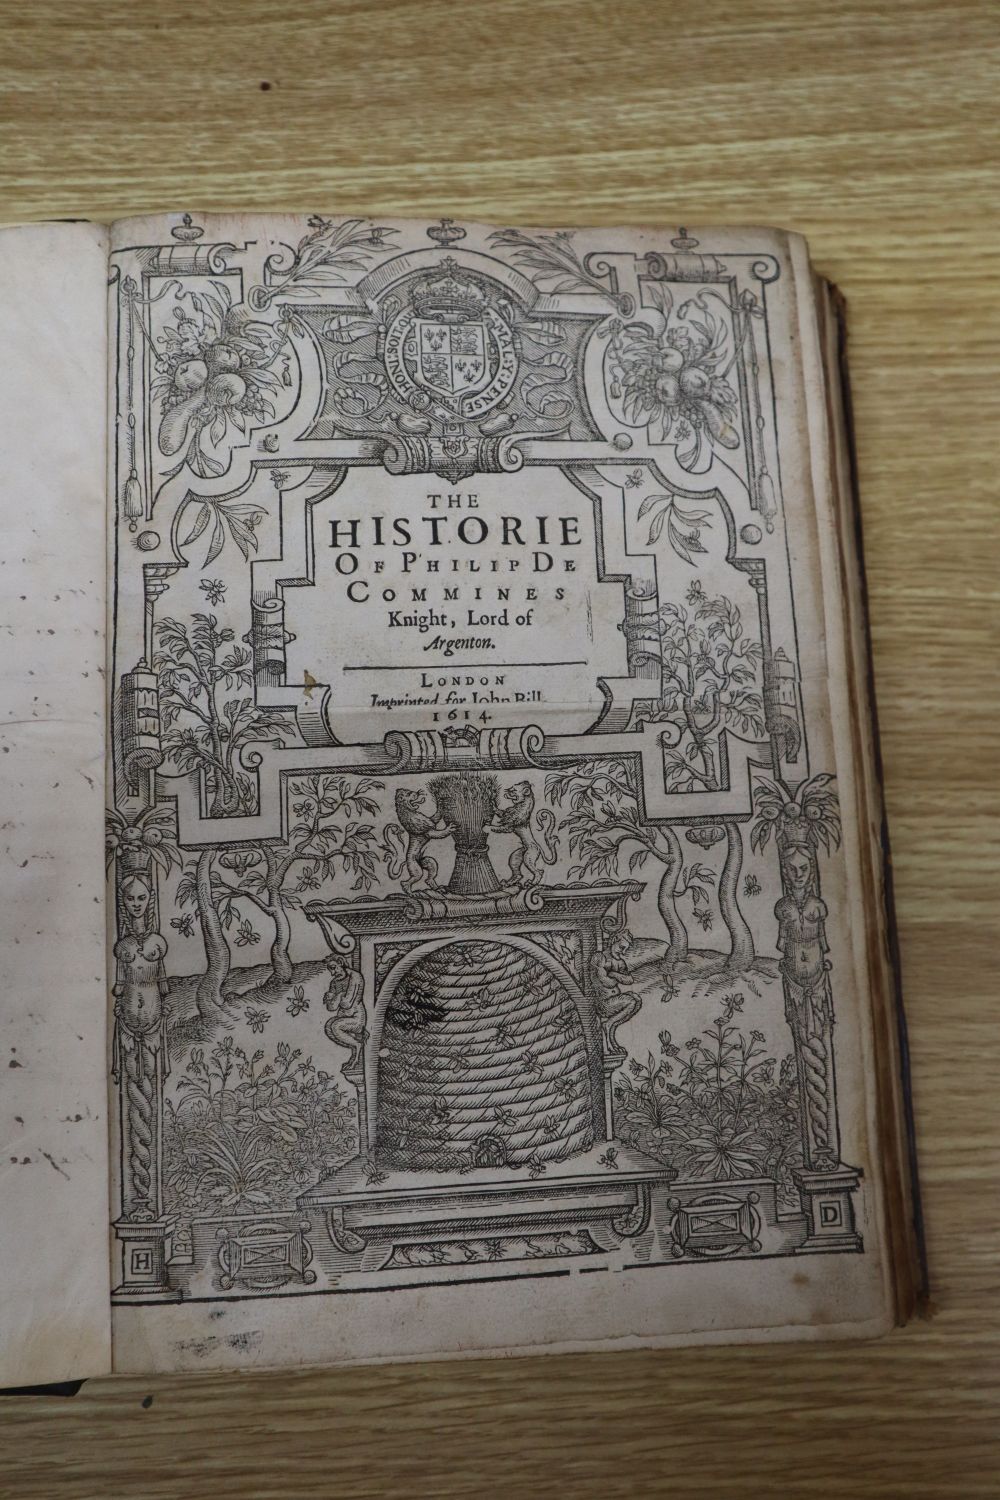 HONI·SOIT·Q
MAL·Y·PENSE
THE
HISTORIE
OF PHILIP DE
COMMINES
Knight, Lord of
Argenton.
LONDON
Imprinted for John Bill
1614.
H
D